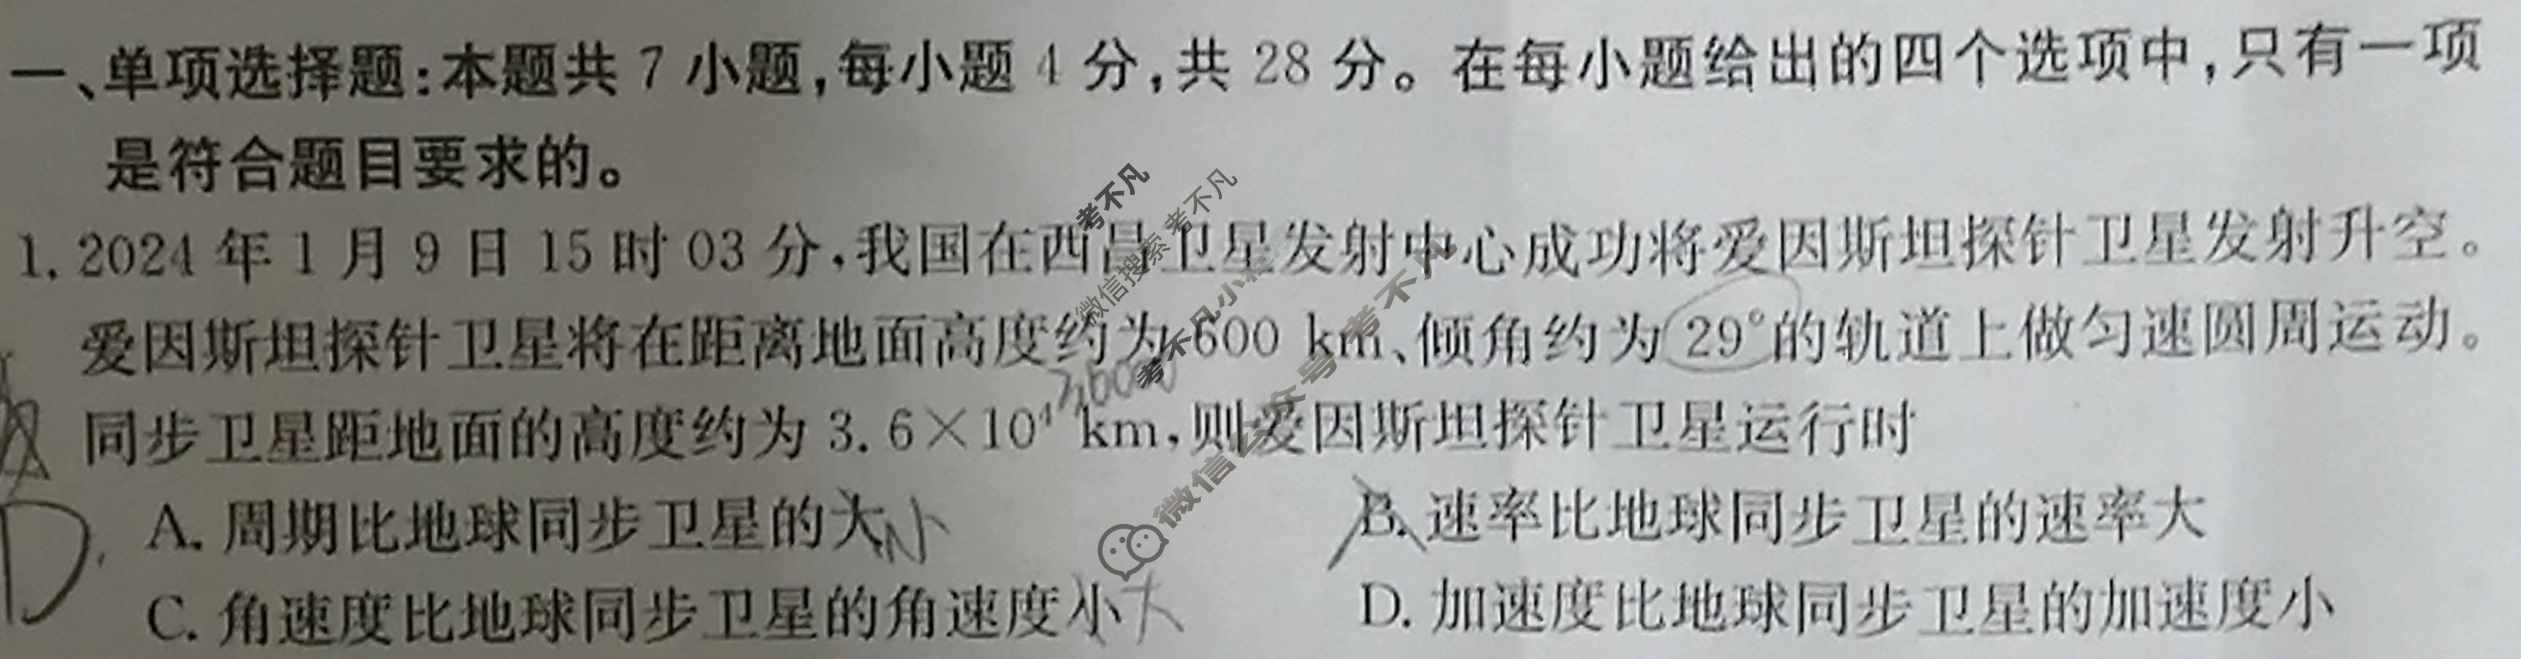 一、单项选择题:本题共 7 小题,每小题 4 分,共 28 分。在每小题给出的四个选项中,只有一项
是符合题目要求的。
1. 2024 年 1 月 9 日 15 时 03 分,我国在西昌卫星发射中心成功将爱因斯坦探针卫星发射升空。
爱因斯坦探针卫星将在距离地面高度约为 600 km、倾角约为 29°的轨道上做匀速圆周运动。
同步卫星距地面的高度约为 3.6×10⁴ km,则爱因斯坦探针卫星运行时
A. 周期比地球同步卫星的大 小
B. 速率比地球同步卫星的速率大
D.
C. 角速度比地球同步卫星的角速度小 大
D. 加速度比地球同步卫星的加速度小
考不凡
微信搜索 考不凡
考不凡小程
微信公众号 考不凡